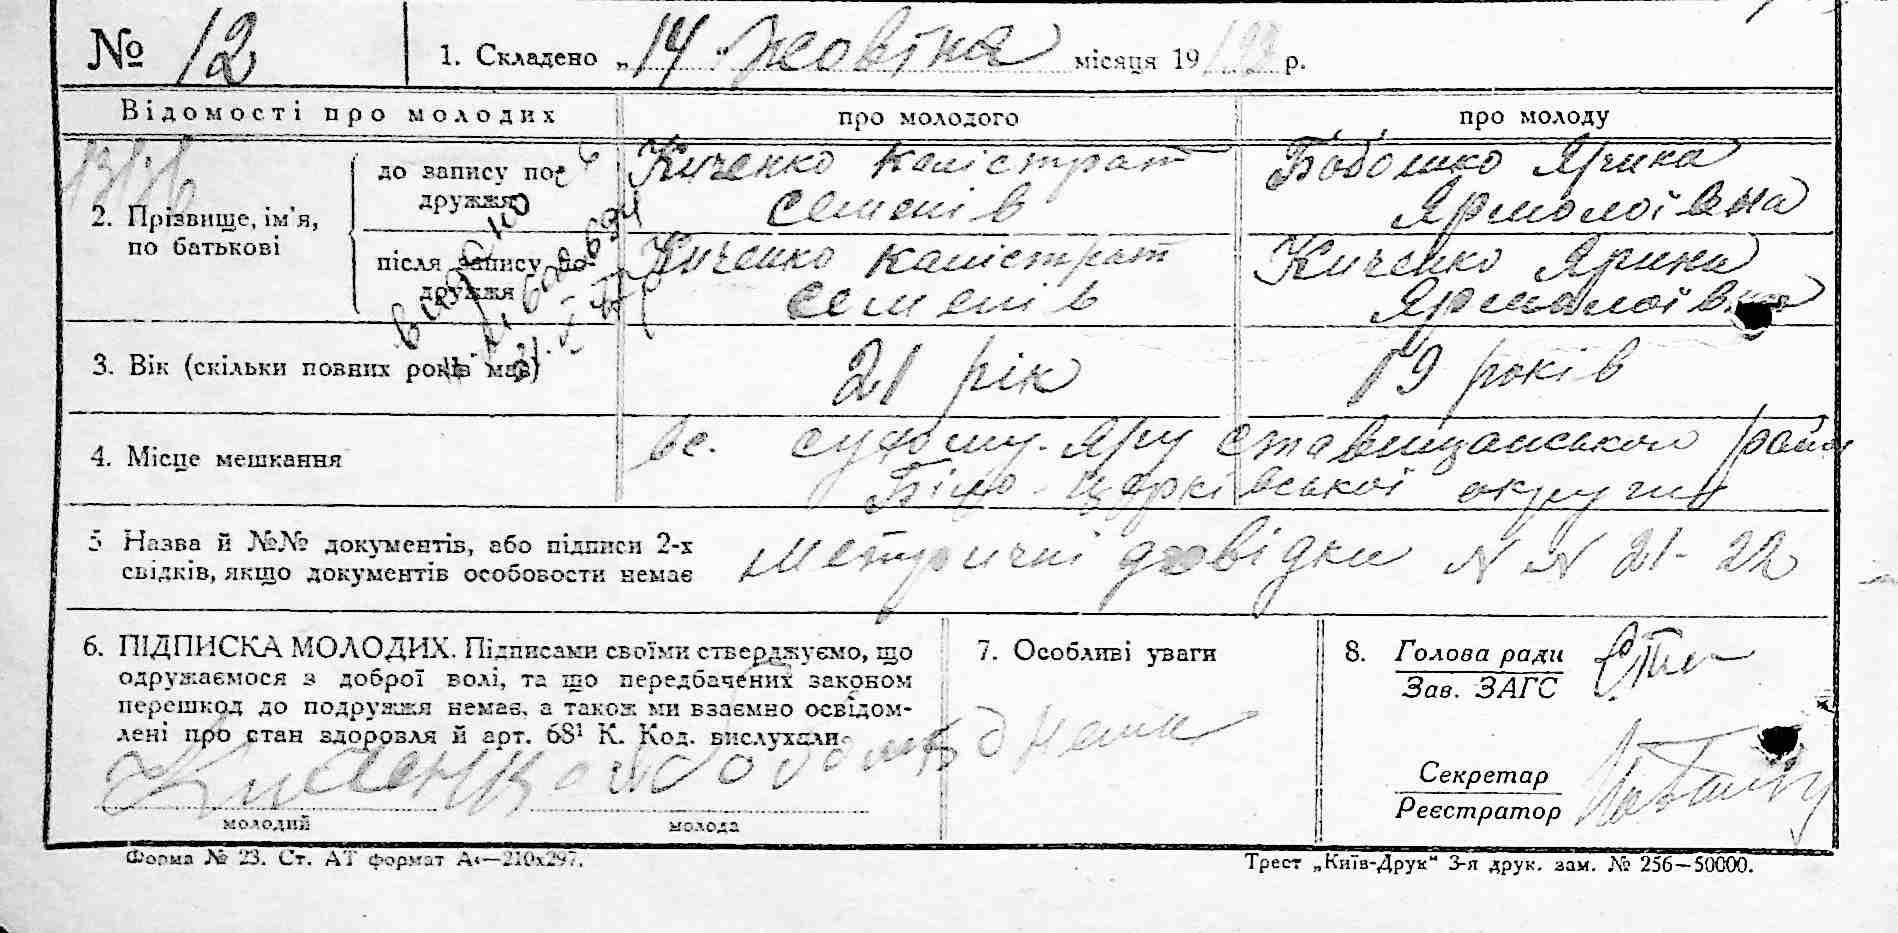 № 12
1. Складено „14" жовтня місяця 19 р.
Відомості про молодих
про молодого
про молоду
2. Прізвище, ім'я,
по батькові
до запису по-
дружжя
Киченко Калістрат
Семенів
Бобошко Ярина
Ярмолоївна
після запису по-
дружжя
Киченко Калістрат
Семенів
Киченко Ярина
Ярмолоївна
3. Вік (скільки повних років має)
21 рік
19 років
4. Місце мешкання
в с. Сухому-Яру Ставищанського району
Біло-Церківської округи
5 Назва й №№ документів, або підписи 2-х
свідків, якщо документів особовости немає
Метричні довідки N N 21-22
6. ПІДПИСКА МОЛОДИХ. Підписами своїми стверджуємо, що
одружаємося з доброї волі, та що передбачених законом
перешкод до подружжя немає, а також ми взаємно освідом-
лені про стан здоровля й арт. 68¹ К. Код. вислухали.
Киченко
молодий
молода
7. Особливі уваги
8. Голова ради
Зав. ЗАГС
Секретар
Реєстратор
Форма № 23. Ст. АТ формат А₄—210x297.
Трест „Київ-Друк" 3-я друк. зам. № 256—50000.